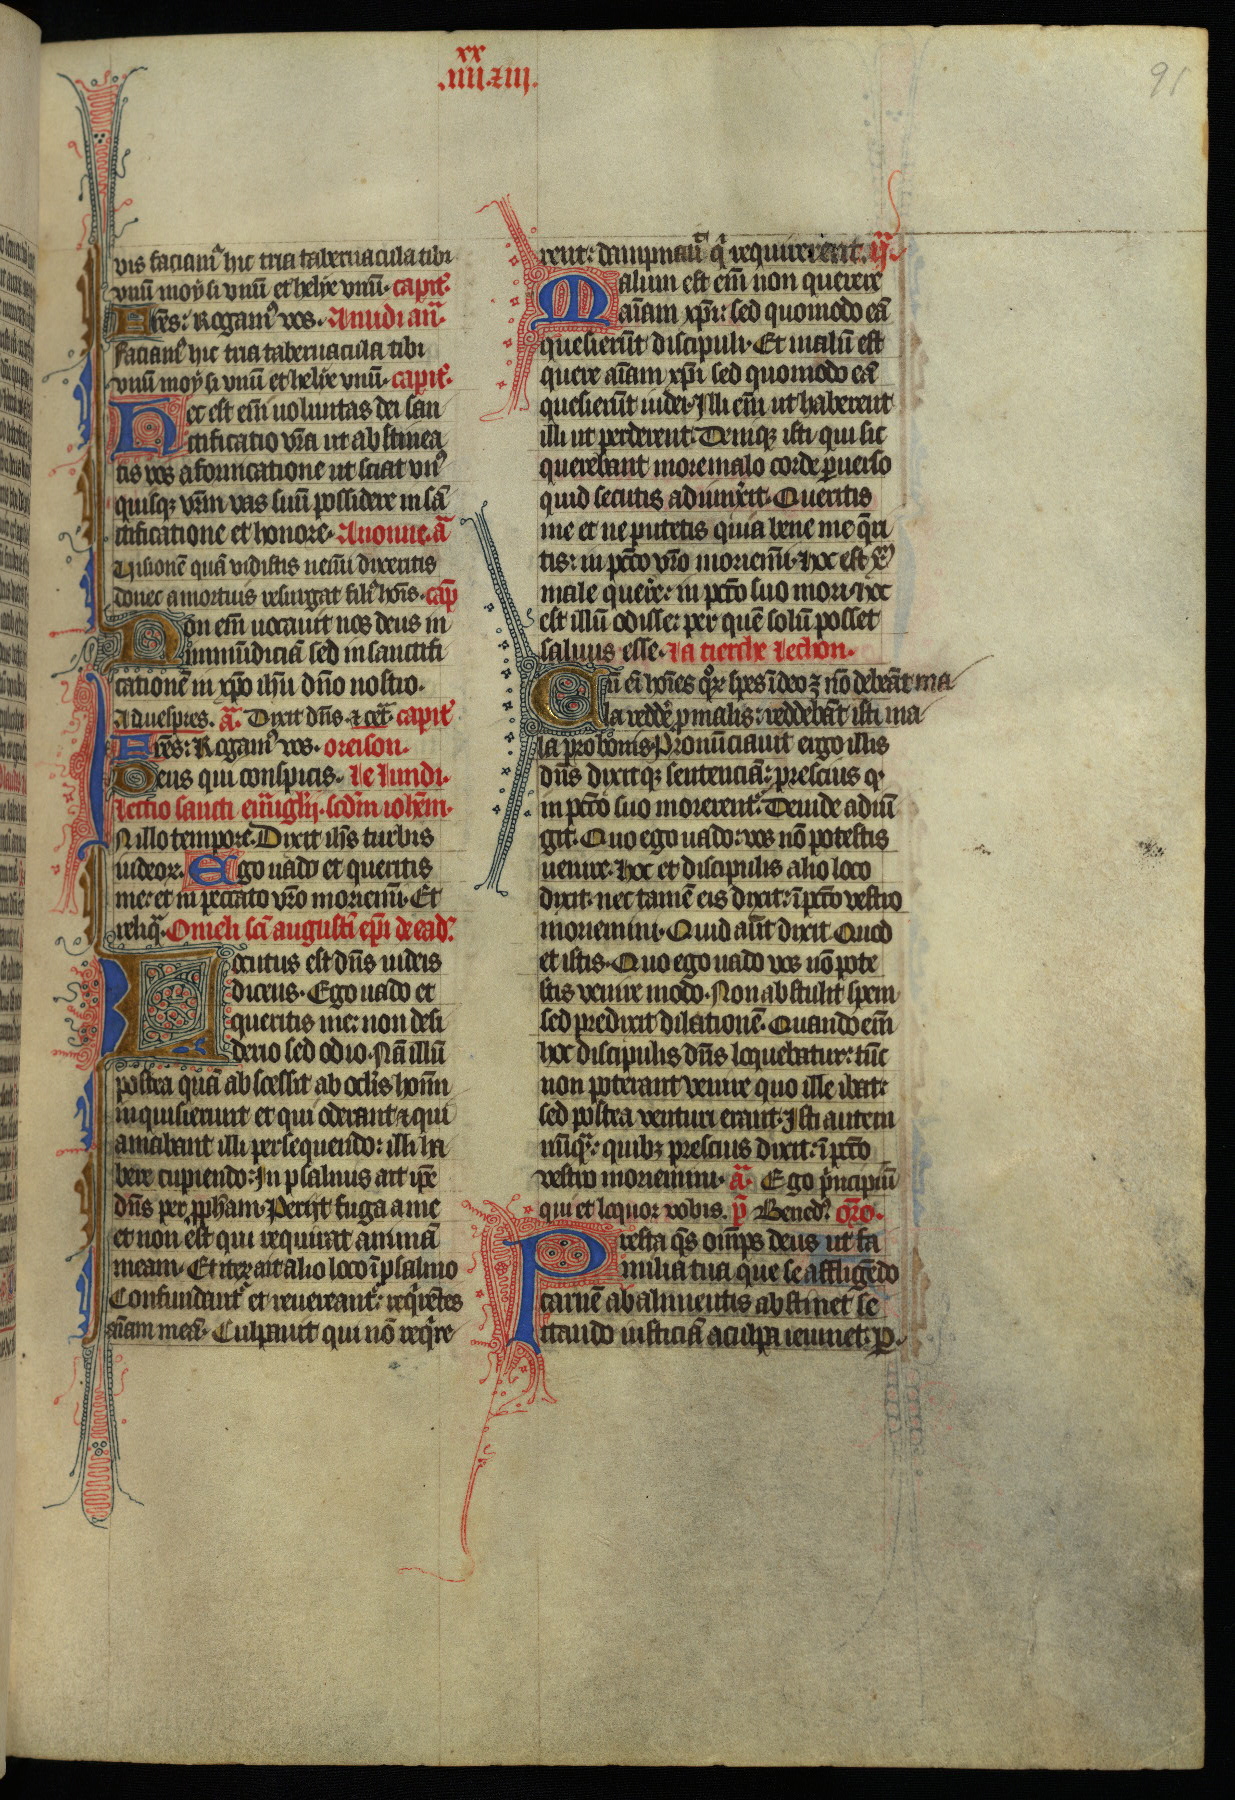 xx
.iiii.⁊iii.
91
vis faciam᷒ hic tria tabernacula tibi
vnū moẏsi vnū et helẏe vnū. capit᷑.
Fr̄es: Rogam᷒ vos. A miidi an̄.
faciam᷒ hic tria tabernacula tibi
vnū moẏsi vnū et helẏe vnū. capit᷑.
Hec est em̄ uoluntas dei san
ctificatio vr̄a ut abstinea
tis vos a fornicatione ut sciat vn᷒
quisqꝫ vr̄m vas suū possidere in sā
ctificatione et honore. A nonne. ā
Visionē quā vidistis nem̄i dixeritis
donec a mortuis resurgat fili᷒ hoīs. cap̄
Non em̄ uocauit nos deus in
inmūdiciā sed in sanctifi
cationē in xp̄o ih̄u dn̄o nostro.
A duespres. ā. Dixit dn̄s. ⁊ cet᷑. capit᷑
Fr̄es: Rogam᷒ vos. oreison.
Deus qui conspicis. Le lundi.
Lectio sancti euu̅glij. scd̄m ioh̄em.
N illo tempore. Dixit ih̄s turbis
iudeoꝝ. Ego uado et queritis
me: et in peccato vr̄o moriem̄i. Et
reliq̄. Omeli sc̄i augusti ep̄i de ead᷑.
Locutus est dn̄s iudeis
dicens. Ego uado et
queritis me: non desi
derio sed odio. Nā illū
postea quā abscessit ab oclīs hoīm
inquisierunt et qui oderant ⁊ qui
amabant illi persequendo: illi ha
bere cupiendo: In psalmis ait ip̄e
dn̄s per pp̄ham. Perijt fuga a me
et non est qui requirat animā
meam. Et iteꝝ ait alio loco ī psalmo
Confundant᷑ et reuereant᷑: req̄rētes
aīam meā. Culpauit qui nō req̄re
rent: dampnau᷑ q̄ requirerent. ij.
Malum est em̄ non querere
aīam xp̄i: sed quomodo eā
quesierūt discipuli. Et malū est
quere aīam xp̄i sed quomodo eā
quesierūt iudei. Illi em̄ ut haberent
illi ut perderent. Deniqꝫ isti qui sic
querebant more malo corde ꝑuerso
quid secutis adiunx̄it. Queritis
me et ne putetis quia bene me q̄ri
tis: in pctō vr̄o moriem̄i. hoc est xp̄m
male quere: in pctō suo mori. hoc
est illū odisse: per quē solū posset
saluus esse. La tierche lechon.
Cū ei hoīes qͦꝝ spes ī deo ⁊ nō debeāt ma
la reddē p malis: reddebāt isti ma
la pro bonis. Pronūciauit ergo illis
dn̄s dixitqꝫ sentenciā: prescius q
in pctō suo morerent᷑. Deinde adiū
git. Quo ego uado: vos nō potestis
uenire. hoc et discipulis alio loco
dixit. nec tamē eis dixit: ī pctō vestro
moriemini. Quid aūt dixit. Quod
et istis. Quo ego uado vos nō pote
stis venire modo. Non abstulit spem
sed predixit dilationē. Quando em̄
hoc discipulis dn̄s loquebatur: tūc
non poterant venire quo ille ibat:
sed postea venturi erant. Isti autem
nūq̄: quibꝫ prescius dixit: ī pctō
vestro moriemini. ā. Ego p̄ncipiū
qui et loquor vobis. p̄ Bened᷑. or̄o.
Presta q̄s om̄ps deus ut fa
milia tua que se affligēdo
carnē ab alimentis abstinet se
ctando iusticiā a culpa ieiunet. ꝑ.